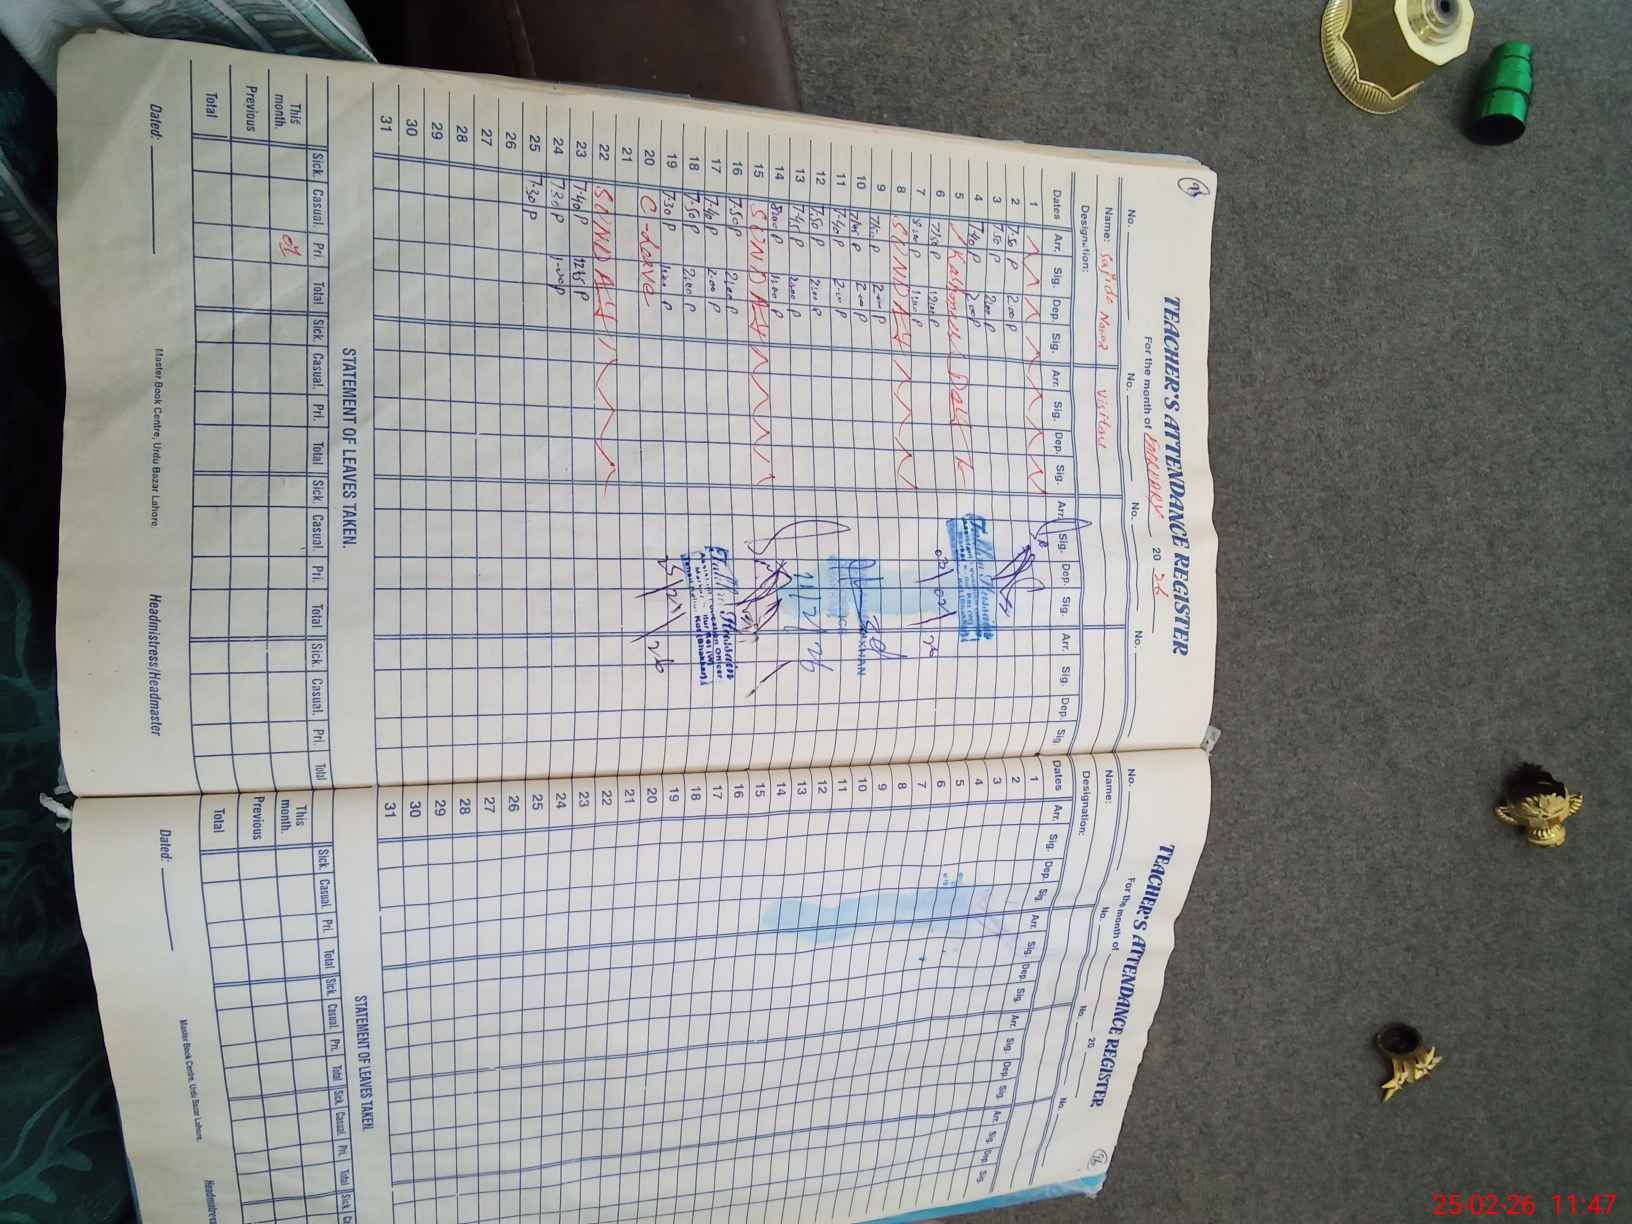 TEACHER'S ATTENDANCE REGISTER
For the month of FABRUARY 20 26
No. No. No. No.
Name: Sajida Nawaz Visitors
Designation:
Dates Arr. Sig. Dep. Sig. Arr. Sig. Dep. Sig. Arr. Sig. Dep. Sig. Arr. Sig. Dep. Sig.
1
2 7:50 P 2:00 P
3 7:50 P 2:00 P
4 7:40 P 2:00 P
5 Kashmir Day
6 7:50 P 12:00 P
7 8:00 P 1:00 P
8 SUNDAY
9 P 2:00 P
10 P 2:00 P
11 7:40 P 2:00 P
12 7:50 P 2:00 P
13 7:45 P 12:00 P
14 8:00 P 1:00 P
15 SUNDAY
16 7:50 P 2:00 P
17 7:40 P 2:00 P
18 7:50 P 2:00 P
19 7:30 P 1:00 P
20 C-Leave
21
22 SUNDAY
23 7:40 P 12:45 P
24 7:30 P 1:00 P
25 7:30 P
26
27
28
29
30
31
03/02/26
11/2/26
Assistant Education Officer
STATEMENT OF LEAVES TAKEN.
Sick. Casual. Pri. Total Sick. Casual. Pri. Total Sick. Casual. Pri. Total Sick. Casual. Pri. Total
This month. 01
Previous
Total
Dated: Master Book Centre, Urdu Bazar Lahore. Headmistress/Headmaster
TEACHER'S ATTENDANCE REGISTER
For the month of 20
No. No. No. No.
Name:
Designation:
Dates Arr. Sig. Dep. Sig. Arr. Sig. Dep. Sig. Arr. Sig. Dep. Sig. Arr. Sig. Dep. Sig.
1
2
3
4
5
6
7
8
9
10
11
12
13
14
15
16
17
18
19
20
21
22
23
24
25
26
27
28
29
30
31
STATEMENT OF LEAVES TAKEN.
Sick. Casual. Pri. Total Sick. Casual. Pri. Total Sick. Casual. Pri. Total Sick. Ca
This month.
Previous
Total
Dated: Master Book Centre, Urdu Bazar Lahore. Headmistress
25-02-26 11:47